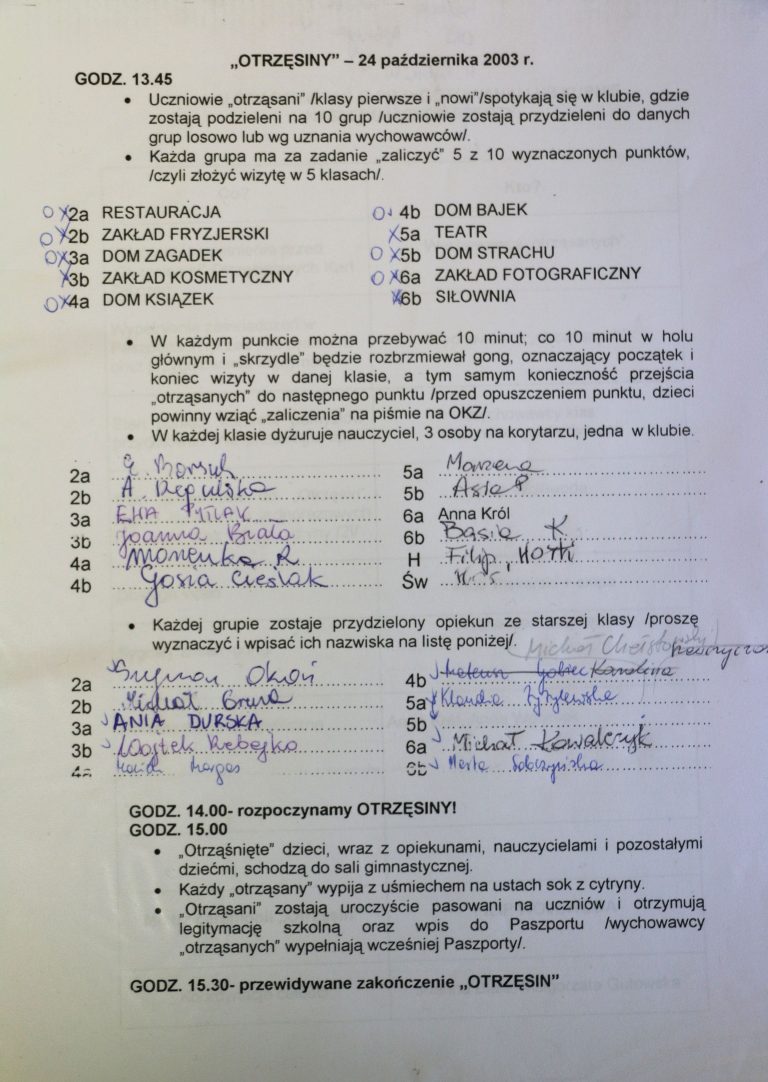 „OTRZĘSINY” – 24 października 2003 r.
GODZ. 13.45
• Uczniowie „otrząsani” /klasy pierwsze i „nowi”/spotykają się w klubie, gdzie
zostają podzieleni na 10 grup /uczniowie zostają przydzieleni do danych
grup losowo lub wg uznania wychowawców/.
• Każda grupa ma za zadanie „zaliczyć” 5 z 10 wyznaczonych punktów,
/czyli złożyć wizytę w 5 klasach/.
2a RESTAURACJA
2b ZAKŁAD FRYZJERSKI
3a DOM ZAGADEK
3b ZAKŁAD KOSMETYCZNY
4a DOM KSIĄZEK
4b DOM BAJEK
5a TEATR
5b DOM STRACHU
6a ZAKŁAD FOTOGRAFICZNY
6b SIŁOWNIA
• W każdym punkcie można przebywać 10 minut; co 10 minut w holu
głównym i „skrzydle” będzie rozbrzmiewał gong, oznaczający początek i
koniec wizyty w danej klasie, a tym samym konieczność przejścia
„otrząsanych” do następnego punktu /przed opuszczeniem punktu, dzieci
powinny wziąć „zaliczenia” na piśmie na OKZ/.
• W każdej klasie dyżuruje nauczyciel, 3 osoby na korytarzu, jedna w klubie.
2a
2b A.
3a
3b Joanna Biała
4a Monenka R
4b Gosia Cieślak
5a Marzena
5b Asia P
6a Anna Król
6b Basia K
H Filip,
Św
• Każdej grupie zostaje przydzielony opiekun ze starszej klasy /proszę
wyznaczyć i wpisać ich nazwiska na listę poniżej/. Michał
2a Szymon Okoń
2b Michał
3a ANIA DURSKA
3b Wojtek Rebejko
4a
4b Mateusz Karolina
5a Klaudia
5b
6a Michał Kowalczyk
6b Marta Sobczyńska
GODZ. 14.00- rozpoczynamy OTRZĘSINY!
GODZ. 15.00
• „Otrząśnięte” dzieci, wraz z opiekunami, nauczycielami i pozostałymi
dziećmi, schodzą do sali gimnastycznej.
• Każdy „otrząsany” wypija z uśmiechem na ustach sok z cytryny.
• „Otrząsani” zostają uroczyście pasowani na uczniów i otrzymują
legitymację szkolną oraz wpis do Paszportu /wychowawcy
„otrząsanych” wypełniają wcześniej Paszporty/.
GODZ. 15.30- przewidywane zakończenie „OTRZĘSIN”